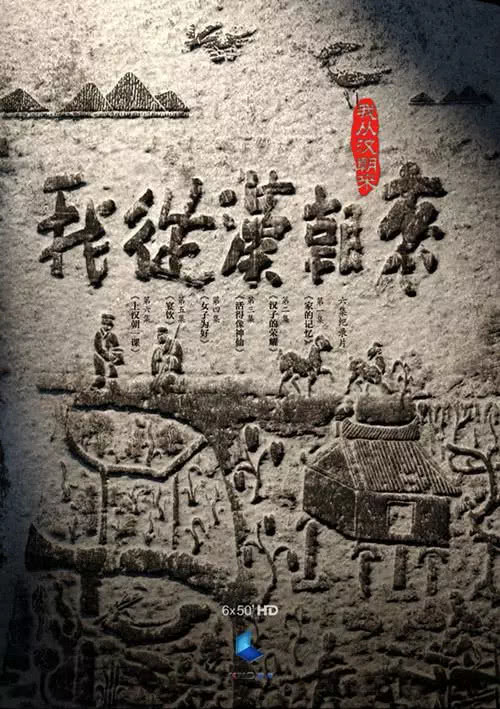 我从汉朝来
我從漢朝来
六集纪录片
第一集
《家的记忆》
第二集
《汉子的荣耀》
第三集
《活得像神仙》
第四集
《女子为好》
第五集
《宴饮》
第六集
《上汉朝一课》
6×50'HD